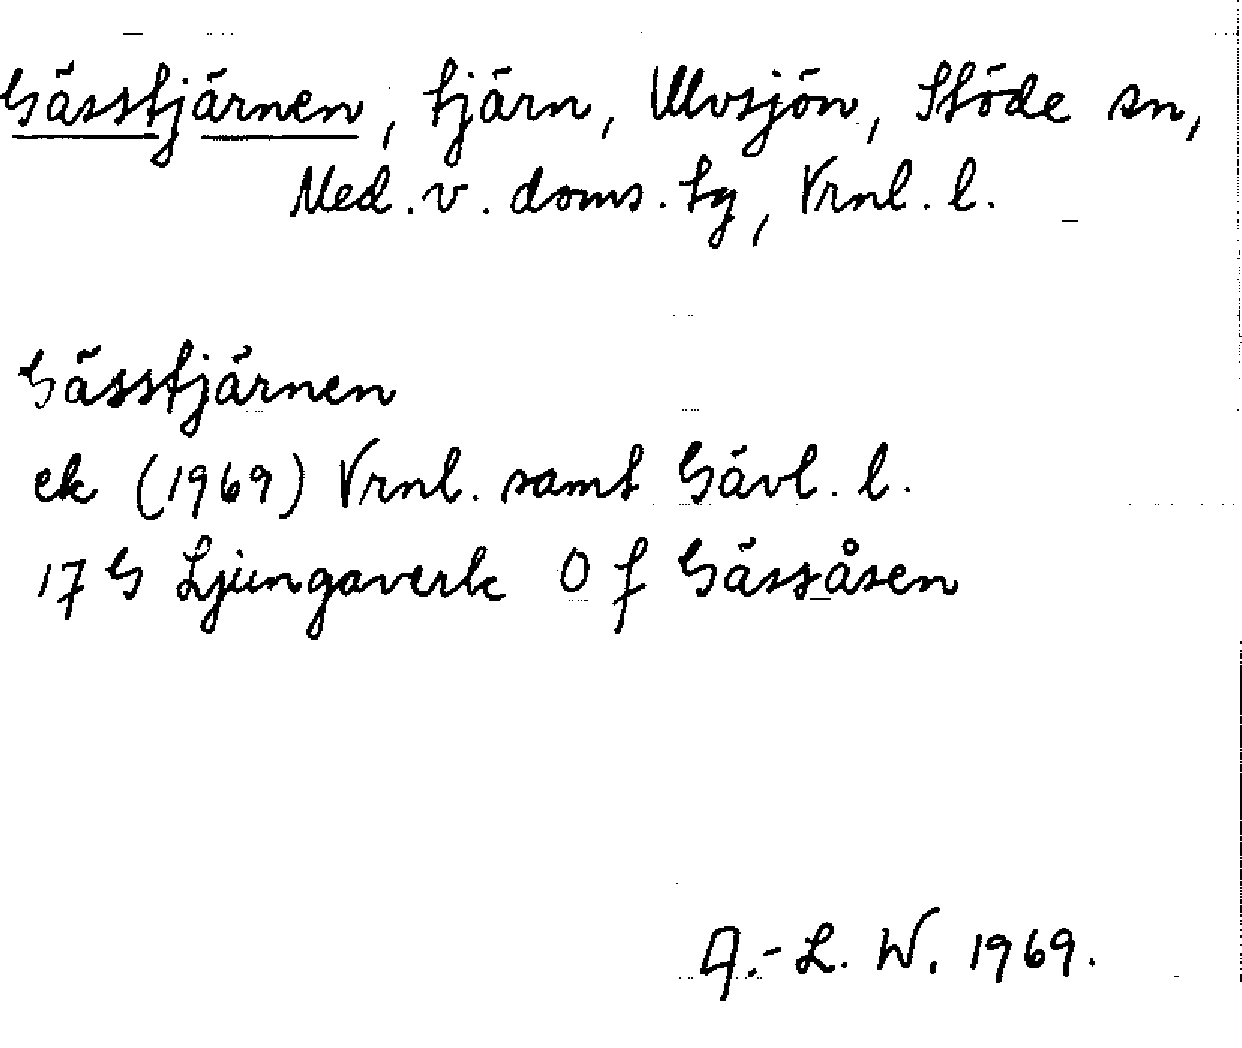 Gässtjärnen, tjärn, Ulvsjön, Stöde sn,
Med. v. doms. tg, Vrnl. l.
Gässtjärnen
ek (1969) Vrnl. samt Gävl. l.
17 G Ljungaverk 0 f Gässåsen
A.-L. W. 1969.